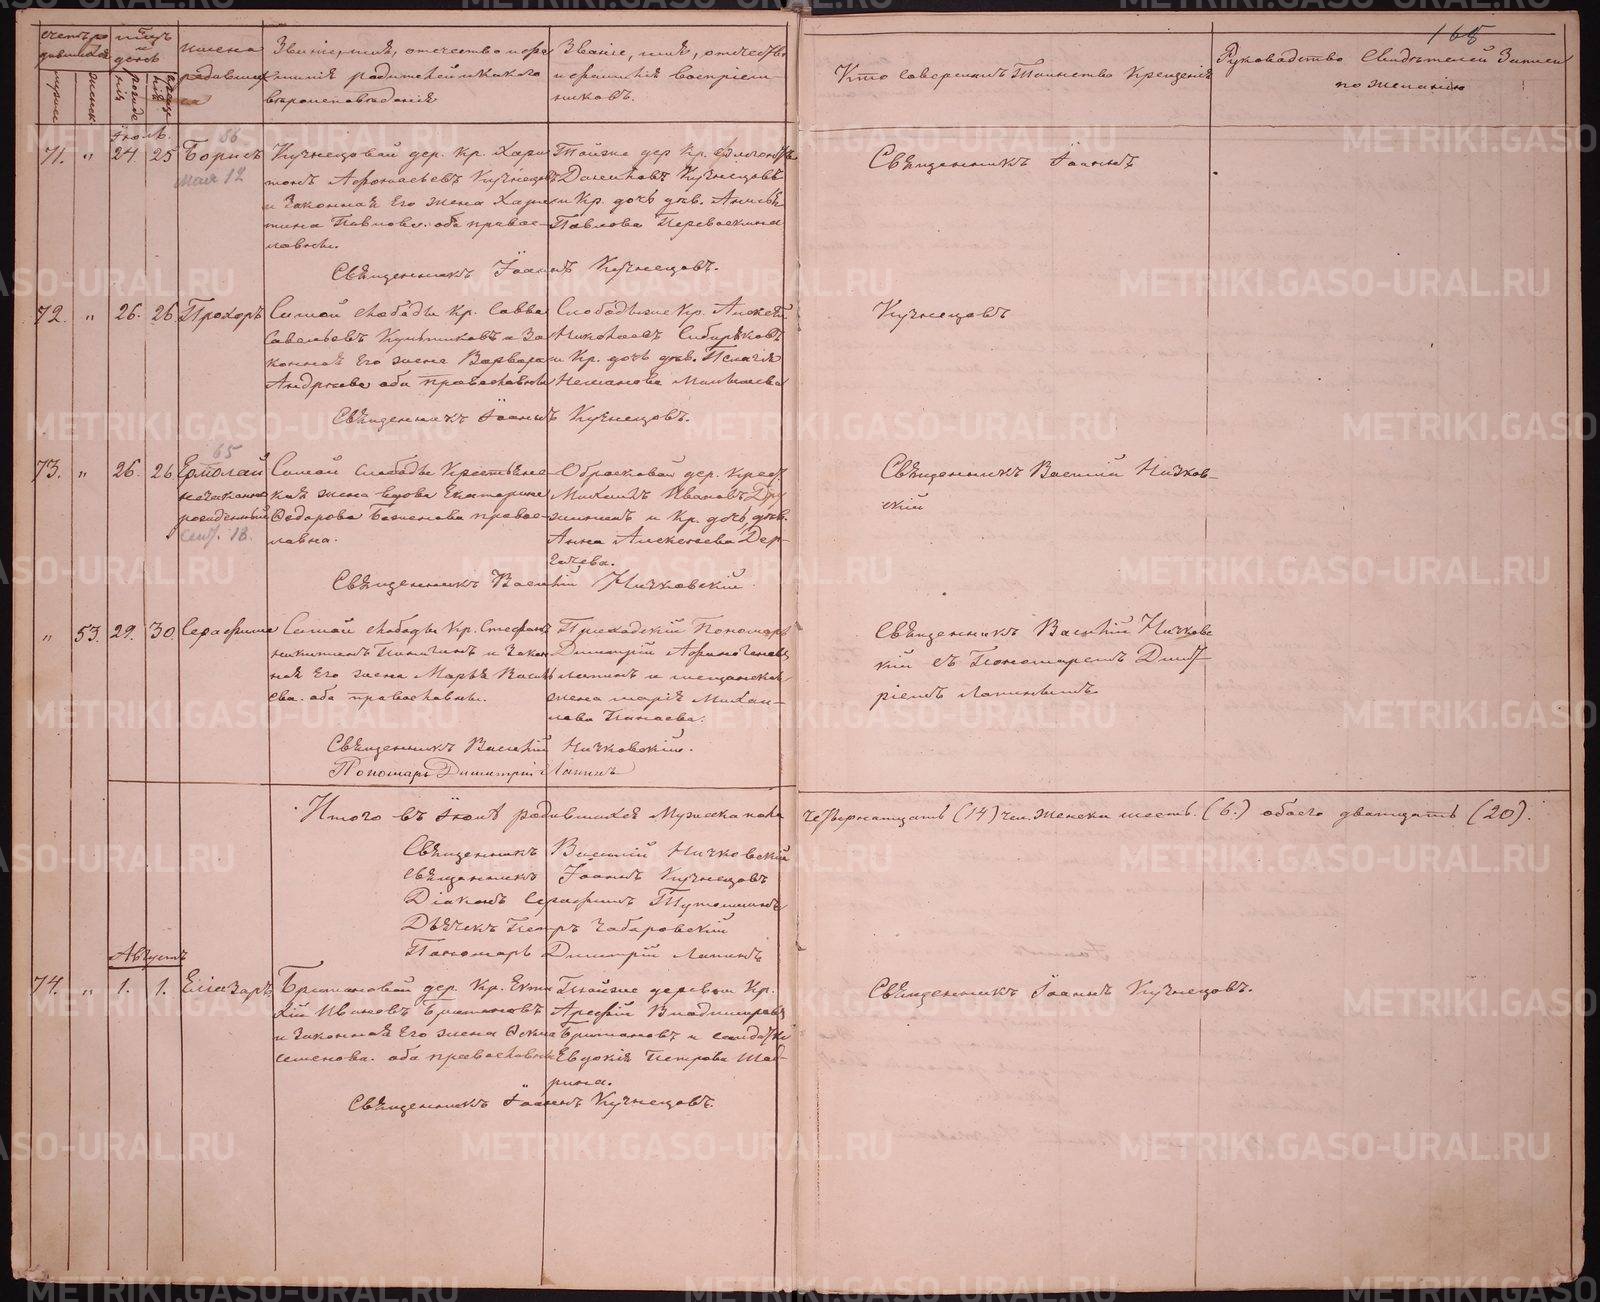 168
Счетъ ро
дившихся
мужеск.
женск.
мѣсяцъ
и
день
рожде
нія
креще
нія
Имена
родивших
ся
Званіе, имя, отечество и фа
милія родителей и какого
вѣроисповѣданія
Званіе, имя, отечество
и фамилія воспріем
никовъ.
Кто совершалъ Таинство Крещенія
Рукоприкладство Свидѣтелей Записи
по желанію
Іюль.
86
71. " 24. 25 Борисъ
Мая 12
Кузнецовой дер. Кр. Хари
тонъ Афонасьевъ Кузнецовъ
и Законная Его жена Хари
тина Павлова. оба правос-
лавные.
Тойже дер Кр.
Кузнецовъ
и Кр. дочь дѣв.
Павлова
Священникъ Іоаннъ
Священникъ Іоаннъ Кузнецовъ.
72. " 26. 26 Прохоръ
Самой слободы Кр. Савва
Савельевъ и За
конная Его жена Варвара
Андреева оба православные
Слободы же Кр. Алексей
Николаевъ Сибиряковъ
и Кр. дочь дѣв. Пелагія
Кузнецовъ
Священникъ Іоаннъ Кузнецовъ.
65
73. " 26. 26 Ермолай
незаконно
рожденный
Сент. 18.
Самой слободы Крестьянс-
кая жена вдова Екатерина
Ѳедорова Баженова правос-
лавна.
дер. Крест.
Михаилъ Ивановъ Дру
жининъ и Кр. дочь дѣв.
Анна Алексеева Дер-
гачева.
Священникъ Василій Ничков-
скій
Священникъ Василій Ничковскій
" 53. 29. 30. Серафима
Самой слободы Кр. Стефанъ
Никитинъ Пинигинъ и Закон
ная Его жена Марья Василь
ева. оба православны.
Приходскій Пономарь
Димитрій Афиногеновъ
Лапинъ и мещанская
жена Марія Михаи-
лова Панаева.
Священникъ Василій Ничковс
кій съ Пономаремъ Димит
ріемъ Лапинымъ
Священникъ Василій Ничковскій.
Пономарь Димитрій Лапинъ
Итого въ Іюлѣ родившихся Мужеска пола четырнатцать (14) чел. женска шесть. (6.) обоего дватцать (20).
Священникъ Василій Ничковскій
Священникъ Іоаннъ Кузнецовъ
Діаконъ Серафимъ
Дьячекъ Петръ Хабаровскій
Пономарь Димитрій Лапинъ
Августъ
74. " 1. 1. Елиазаръ
Британовой дер. Кр. Евти
хій Ивановъ Британовъ
и Законная Его жена Ѳекла
Семенова. оба православны
Тойже деревни Кр.
Арефій Владимировъ
Британовъ и солдатка
Евдокія Петрова Шад-
рина.
Священникъ Іоаннъ Кузнецовъ.
Священникъ Іоаннъ Кузнецовъ.
METRIKI.GASO-URAL.RU